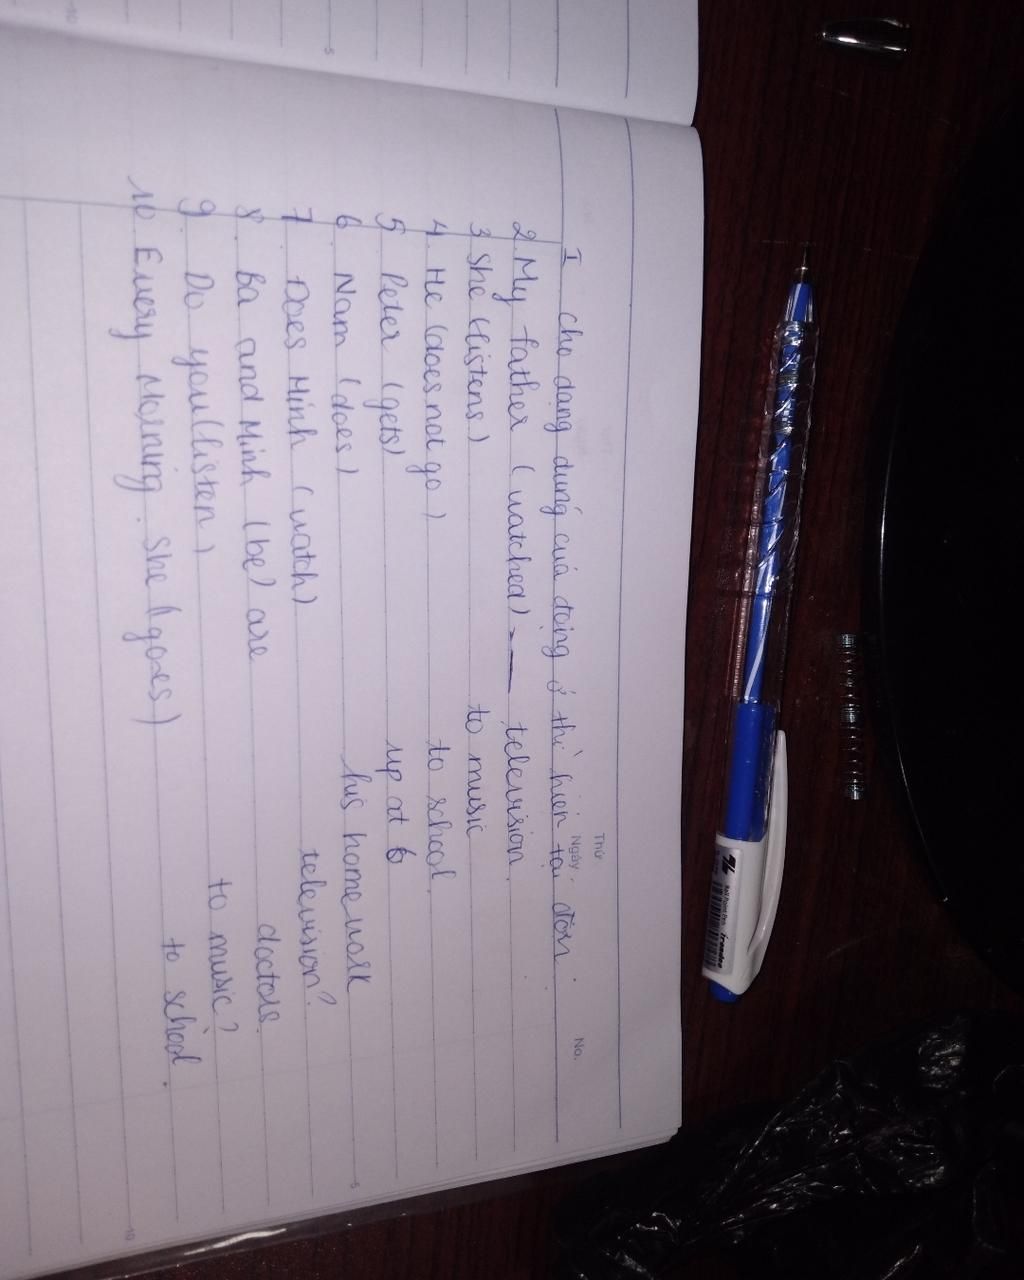 Thứ
Ngày.
No.
I cho dạng đúng của động ở thì hiện tại đơn.
2. My father (watched) - — television.
3 She (listens) to music
4. He (does not go) to school.
5 Peter (gets) up at 6
6. Nam (does) his homework
7. Does Minh (watch) television?
8. Ba and Minh (be) are doctors.
9. Do you (listen) to music?
10. Every Morning. She (goes) to school.
5
10
5
10